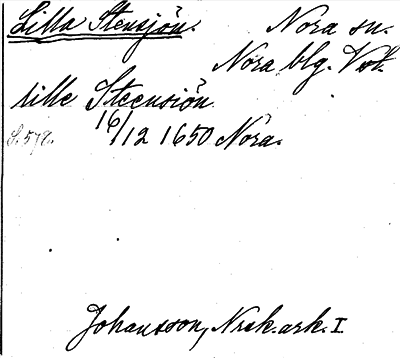 Lilla Stensjön. Nora sn.
Nora blg. Vstm.
lille Steensiön
16/12 1650 Nora.
S. 572.
Johansson, Nrak. ark. I